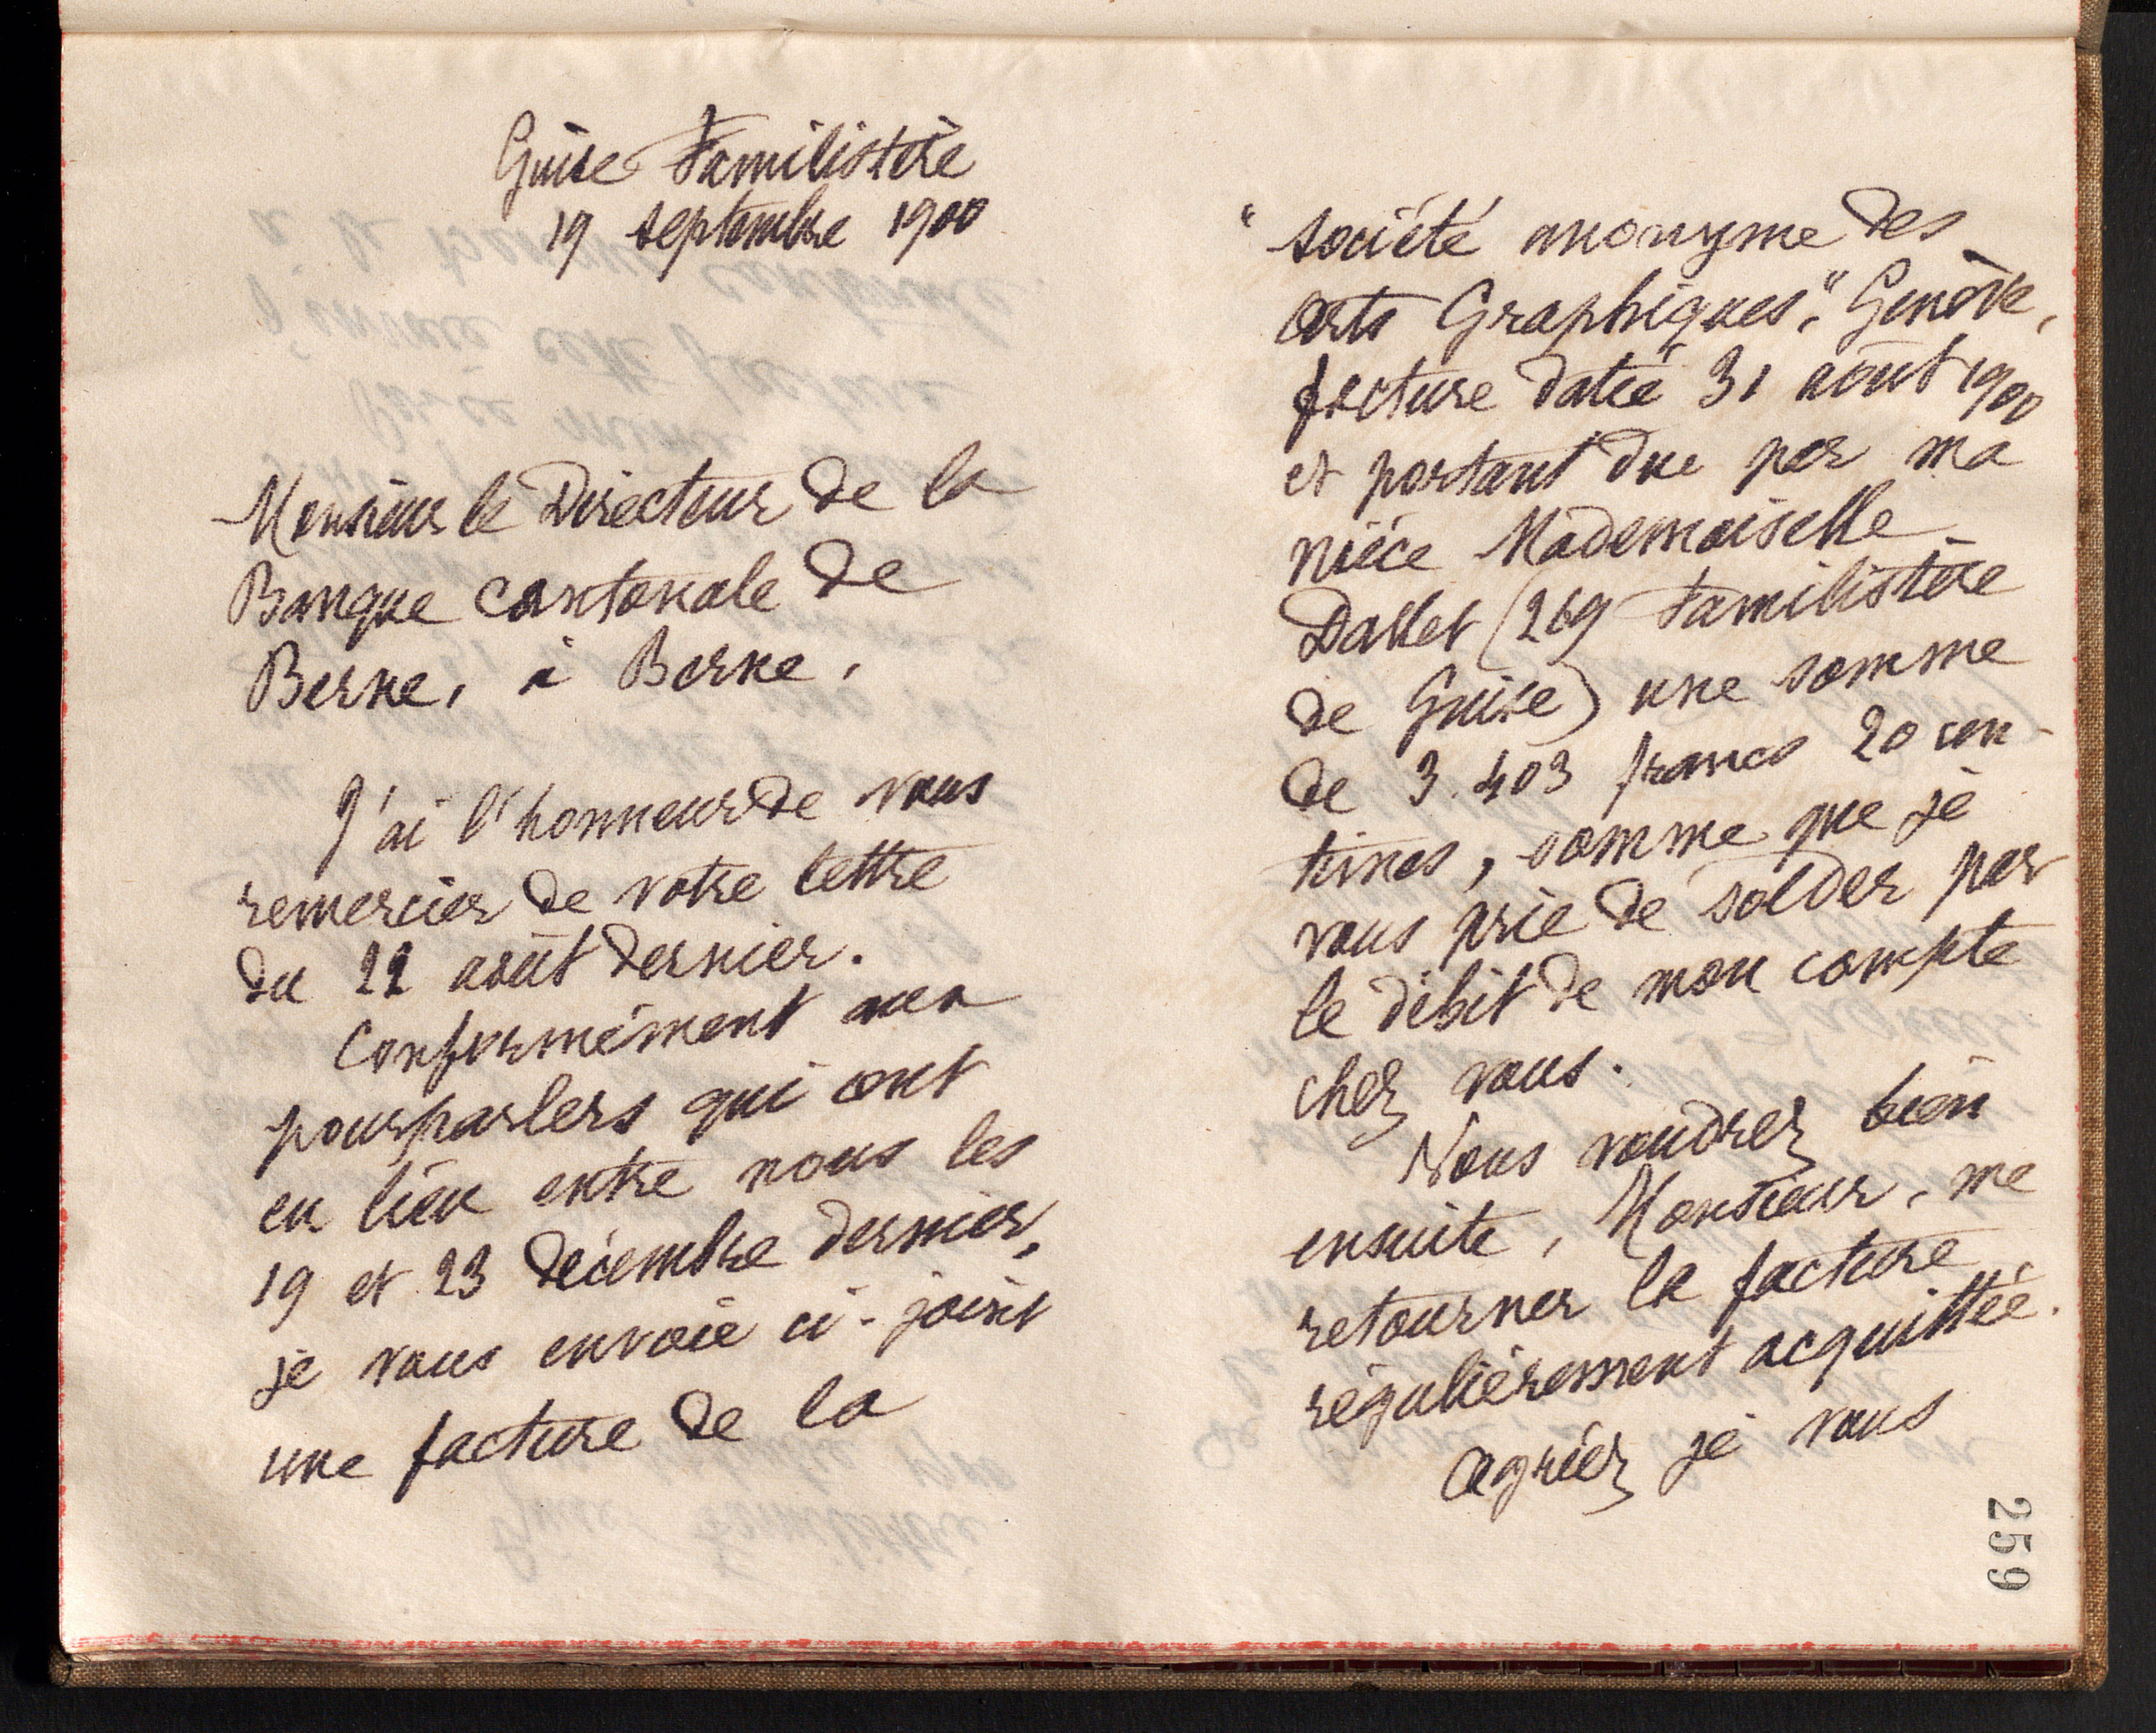 Guise Familistère
19 septembre 1900
Monsieur le Directeur de la
Banque cantonale de
Berne, à Berne,
J'ai l'honneur de vous
remercier de votre lettre
du 22 août dernier.
Conformément aux
pourparlers qui ont
eu lieu entre nous les
19 et 23 décembre dernier,
je vous envoie ci-joint
une facture de la
"société anonyme des
Arts Graphiques", Genève,
facture datée 31 août 1900
et portant due par ma
nièce Mademoiselle
Dallet (269 Familistère
de Guise) une somme
de 3.403 francs 20 cen-
times, somme que je
vous prie de solder par
le débit de mon compte
chez vous.
Vous voudrez bien
ensuite, Monsieur, me
retourner la facture
régulièrement acquittée.
Agréez je vous
259